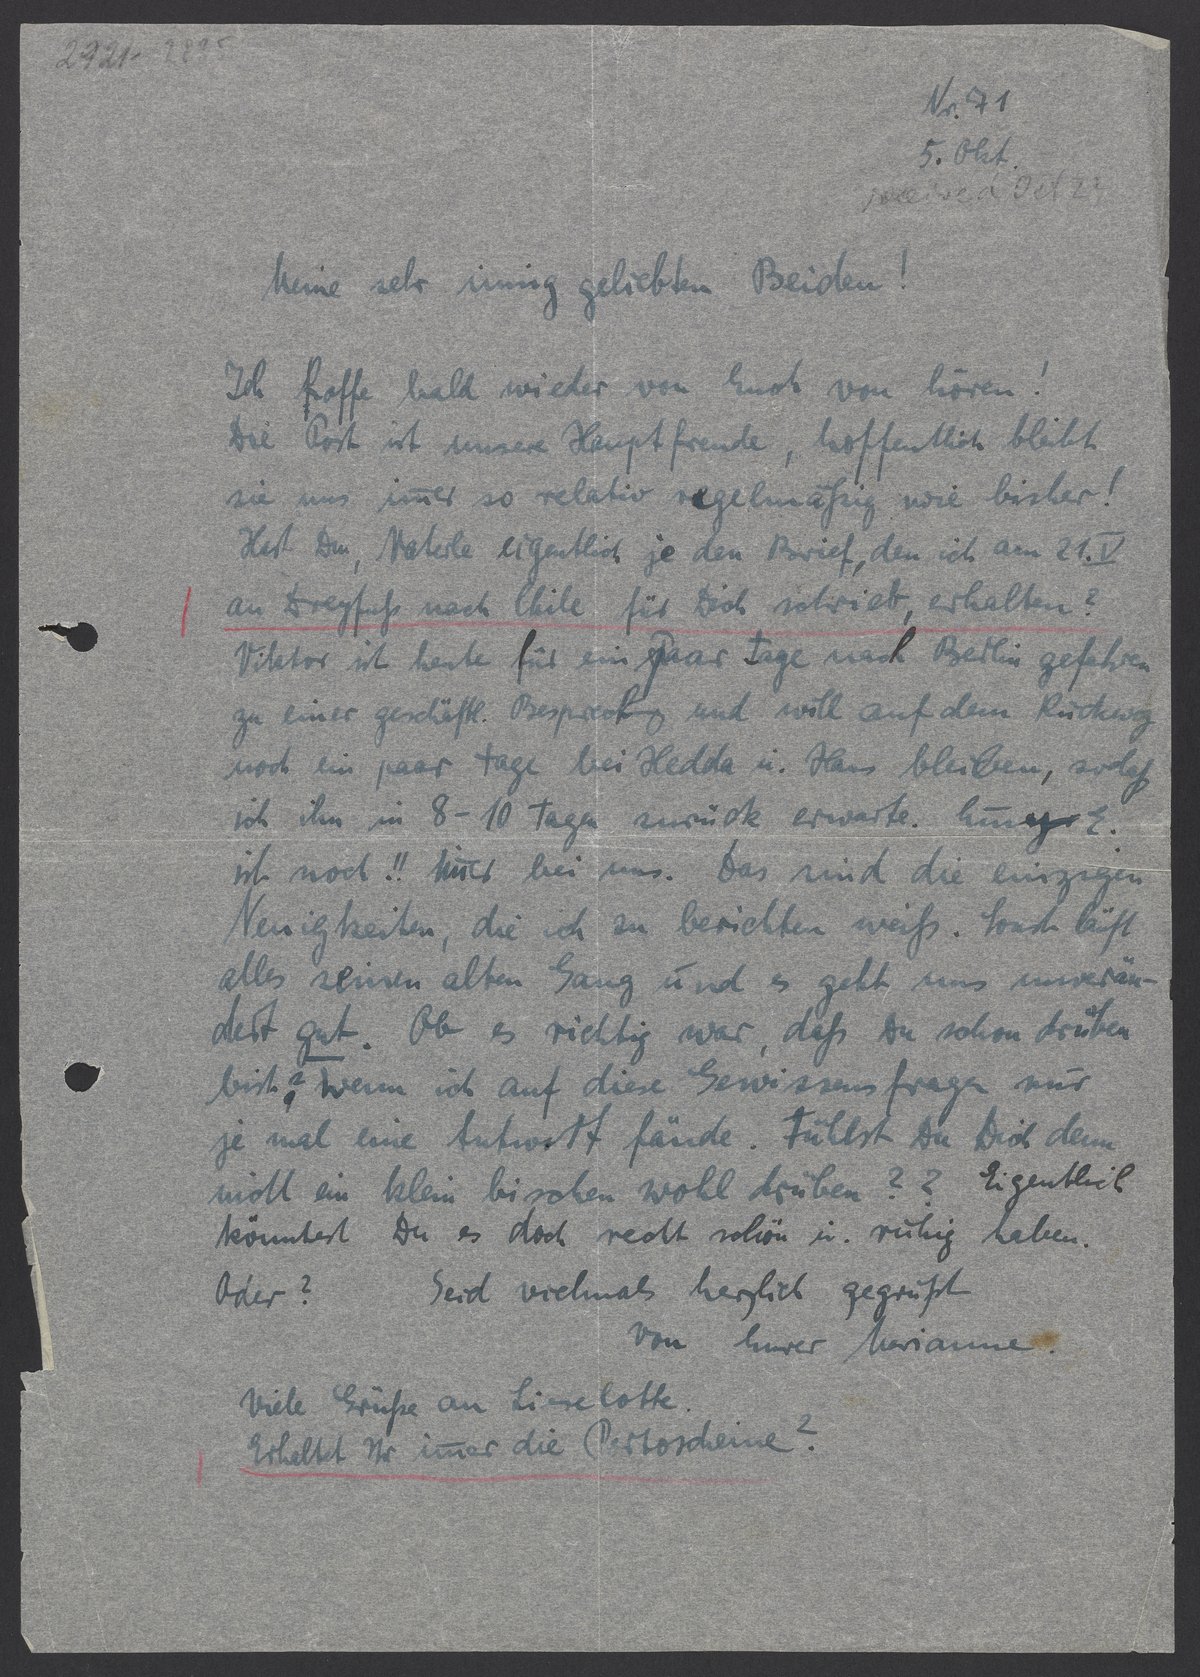 2921-2895
Nr. 71
5. Okt.
received Oct 23
Meine sehr innig geliebten Beiden!
Ich hoffe bald wieder von Euch von hören!
Die Post ist unsere Hauptfreude, hoffentlich bleibt
sie uns im̅er so relativ regelmäßig wie bisher!
Hast Du, Vaterle eigentlich je den Brief, den ich am 21. V
an Dreyfuß nach Chile für Dich schrieb, erhalten?
Viktor ist heute für ein paar Tage nach Berlin gefahren
zu einer geschäftl. Besprechung und will auf dem Rückweg
noch ein paar Tage bei Hedda u. Hans bleiben, sodaß
ich ihn in 8-10 Tagen zurück erwarte. E.
ist noch!! im̅er bei uns. Das sind die einzigen
Neuigkeiten, die ich zu berichten weiß. Sonst läuft
alles seinen alten Gang und es geht uns unverän-
dert gut. Ob es richtig war, daß Du schon drüben
bist? Wenn ich auf diese Gewissensfragen nur
je mal eine Antwort fände. Fühlst Du Dich denn
nicht ein klein bischen wohl drüben?? Eigentlich
könntest Du es doch recht schön u. ruhig haben.
Oder? Seid vielmals herzlich gegrüßt
von Eurer Marianne.
Viele Grüße an Lieselotte.
Erhaltet Ihr im̅er die Portoscheine?